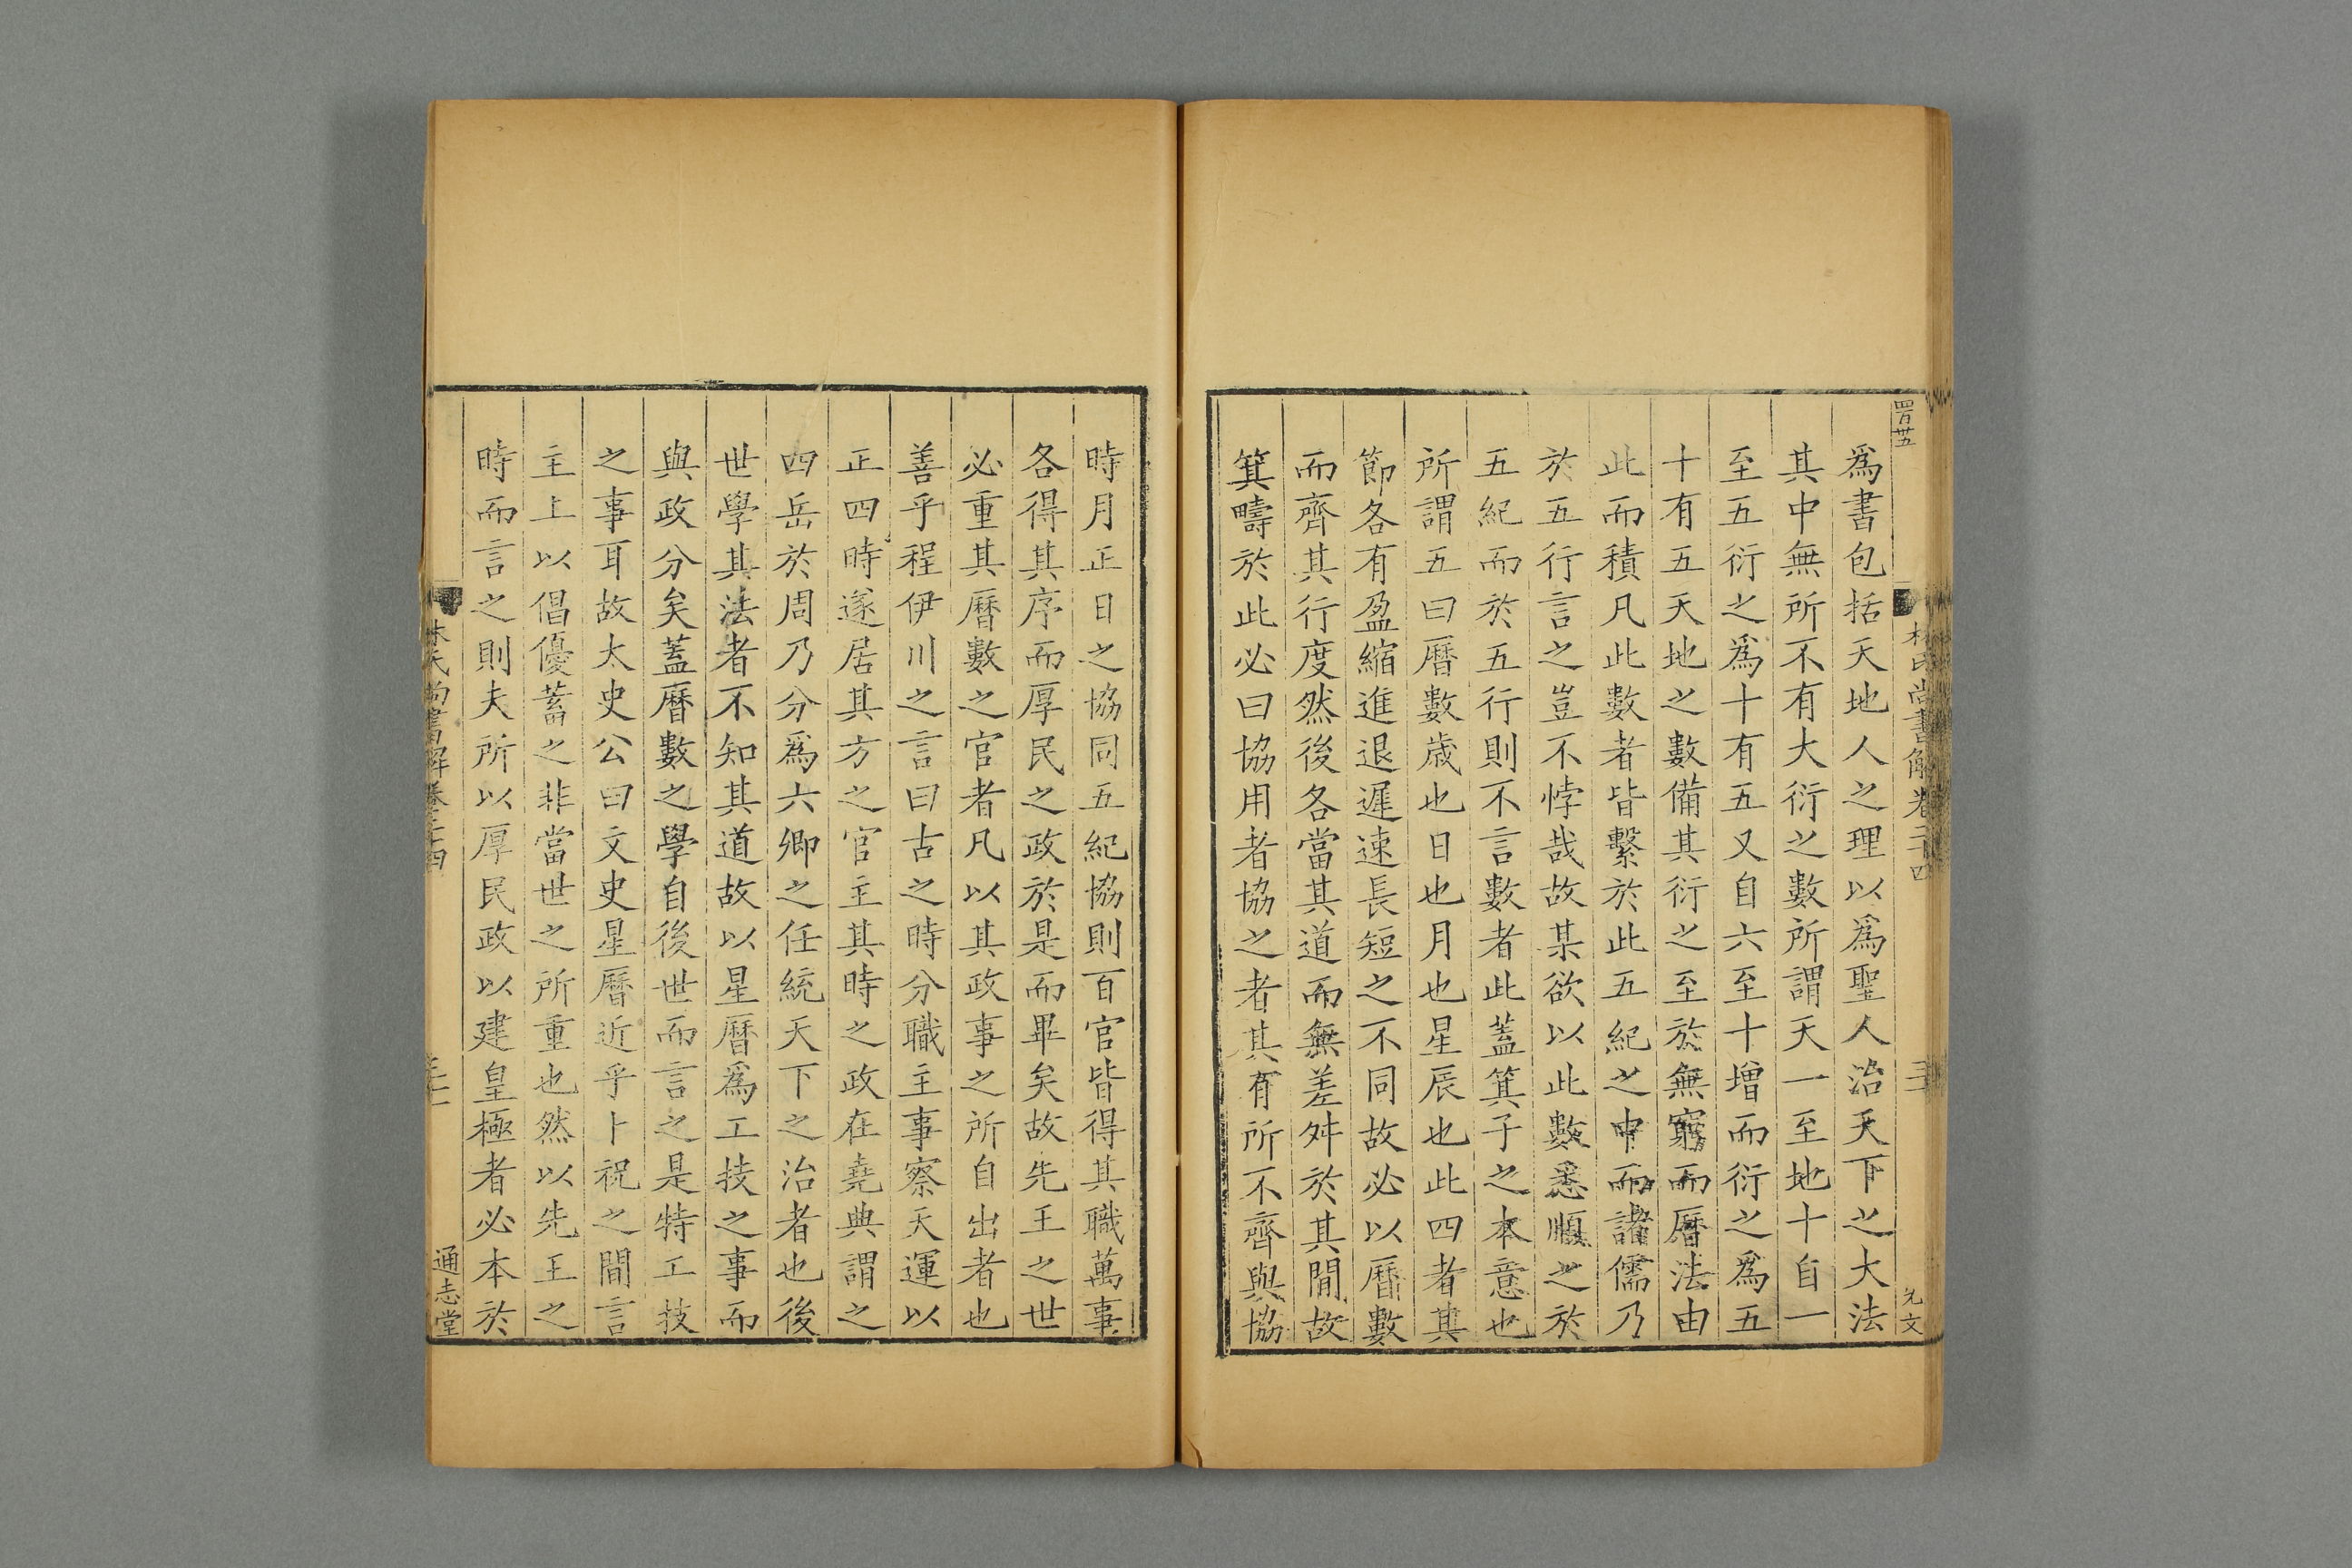 爲書包括天地人之理以爲聖人治天下之大法
其中無所不有大衍之數所謂天一至地十自一
至五衍之爲十有五又自六至十增而衍之爲五
十有五天地之數備其衍之至於無窮而曆法由
此而積凡此數者皆繫於此五紀之中而諸儒乃
於五行言之豈不悖哉故某欲以此數悉順之於
五紀而於五行則不言數者此蓋箕子之本意也
所謂五曰曆數歲也日也月也星辰也此四者其
節各有盈縮進退遲速長短之不同故必以曆數
而齊其行度然後各當其道而無差舛於其間故
箕疇於此必曰協用者協之者其有所不齊與協
時月正日之協同五紀協則百官皆得其職萬事
各得其序而厚民之政於是而畢矣故先王之世
必重其曆數之官者凡以其政事之所自出者也
善乎程伊川之言曰古之時分職主事察天運以
正四時遂居其方之官主其時之政在堯典謂之
四岳於周乃分爲六卿之任統天下之治者也後
世學其法者不知其道故以星曆爲工技之事而
與政分矣蓋曆數之學自後世而言之是特工技
之事耳故太史公曰文史星曆近乎卜祝之間言
主上以倡優蓄之非當世之所重也然以先王之
時而言之則夫所以厚民政以建皇極者必本於
林氏尚書解卷二十四
通志堂